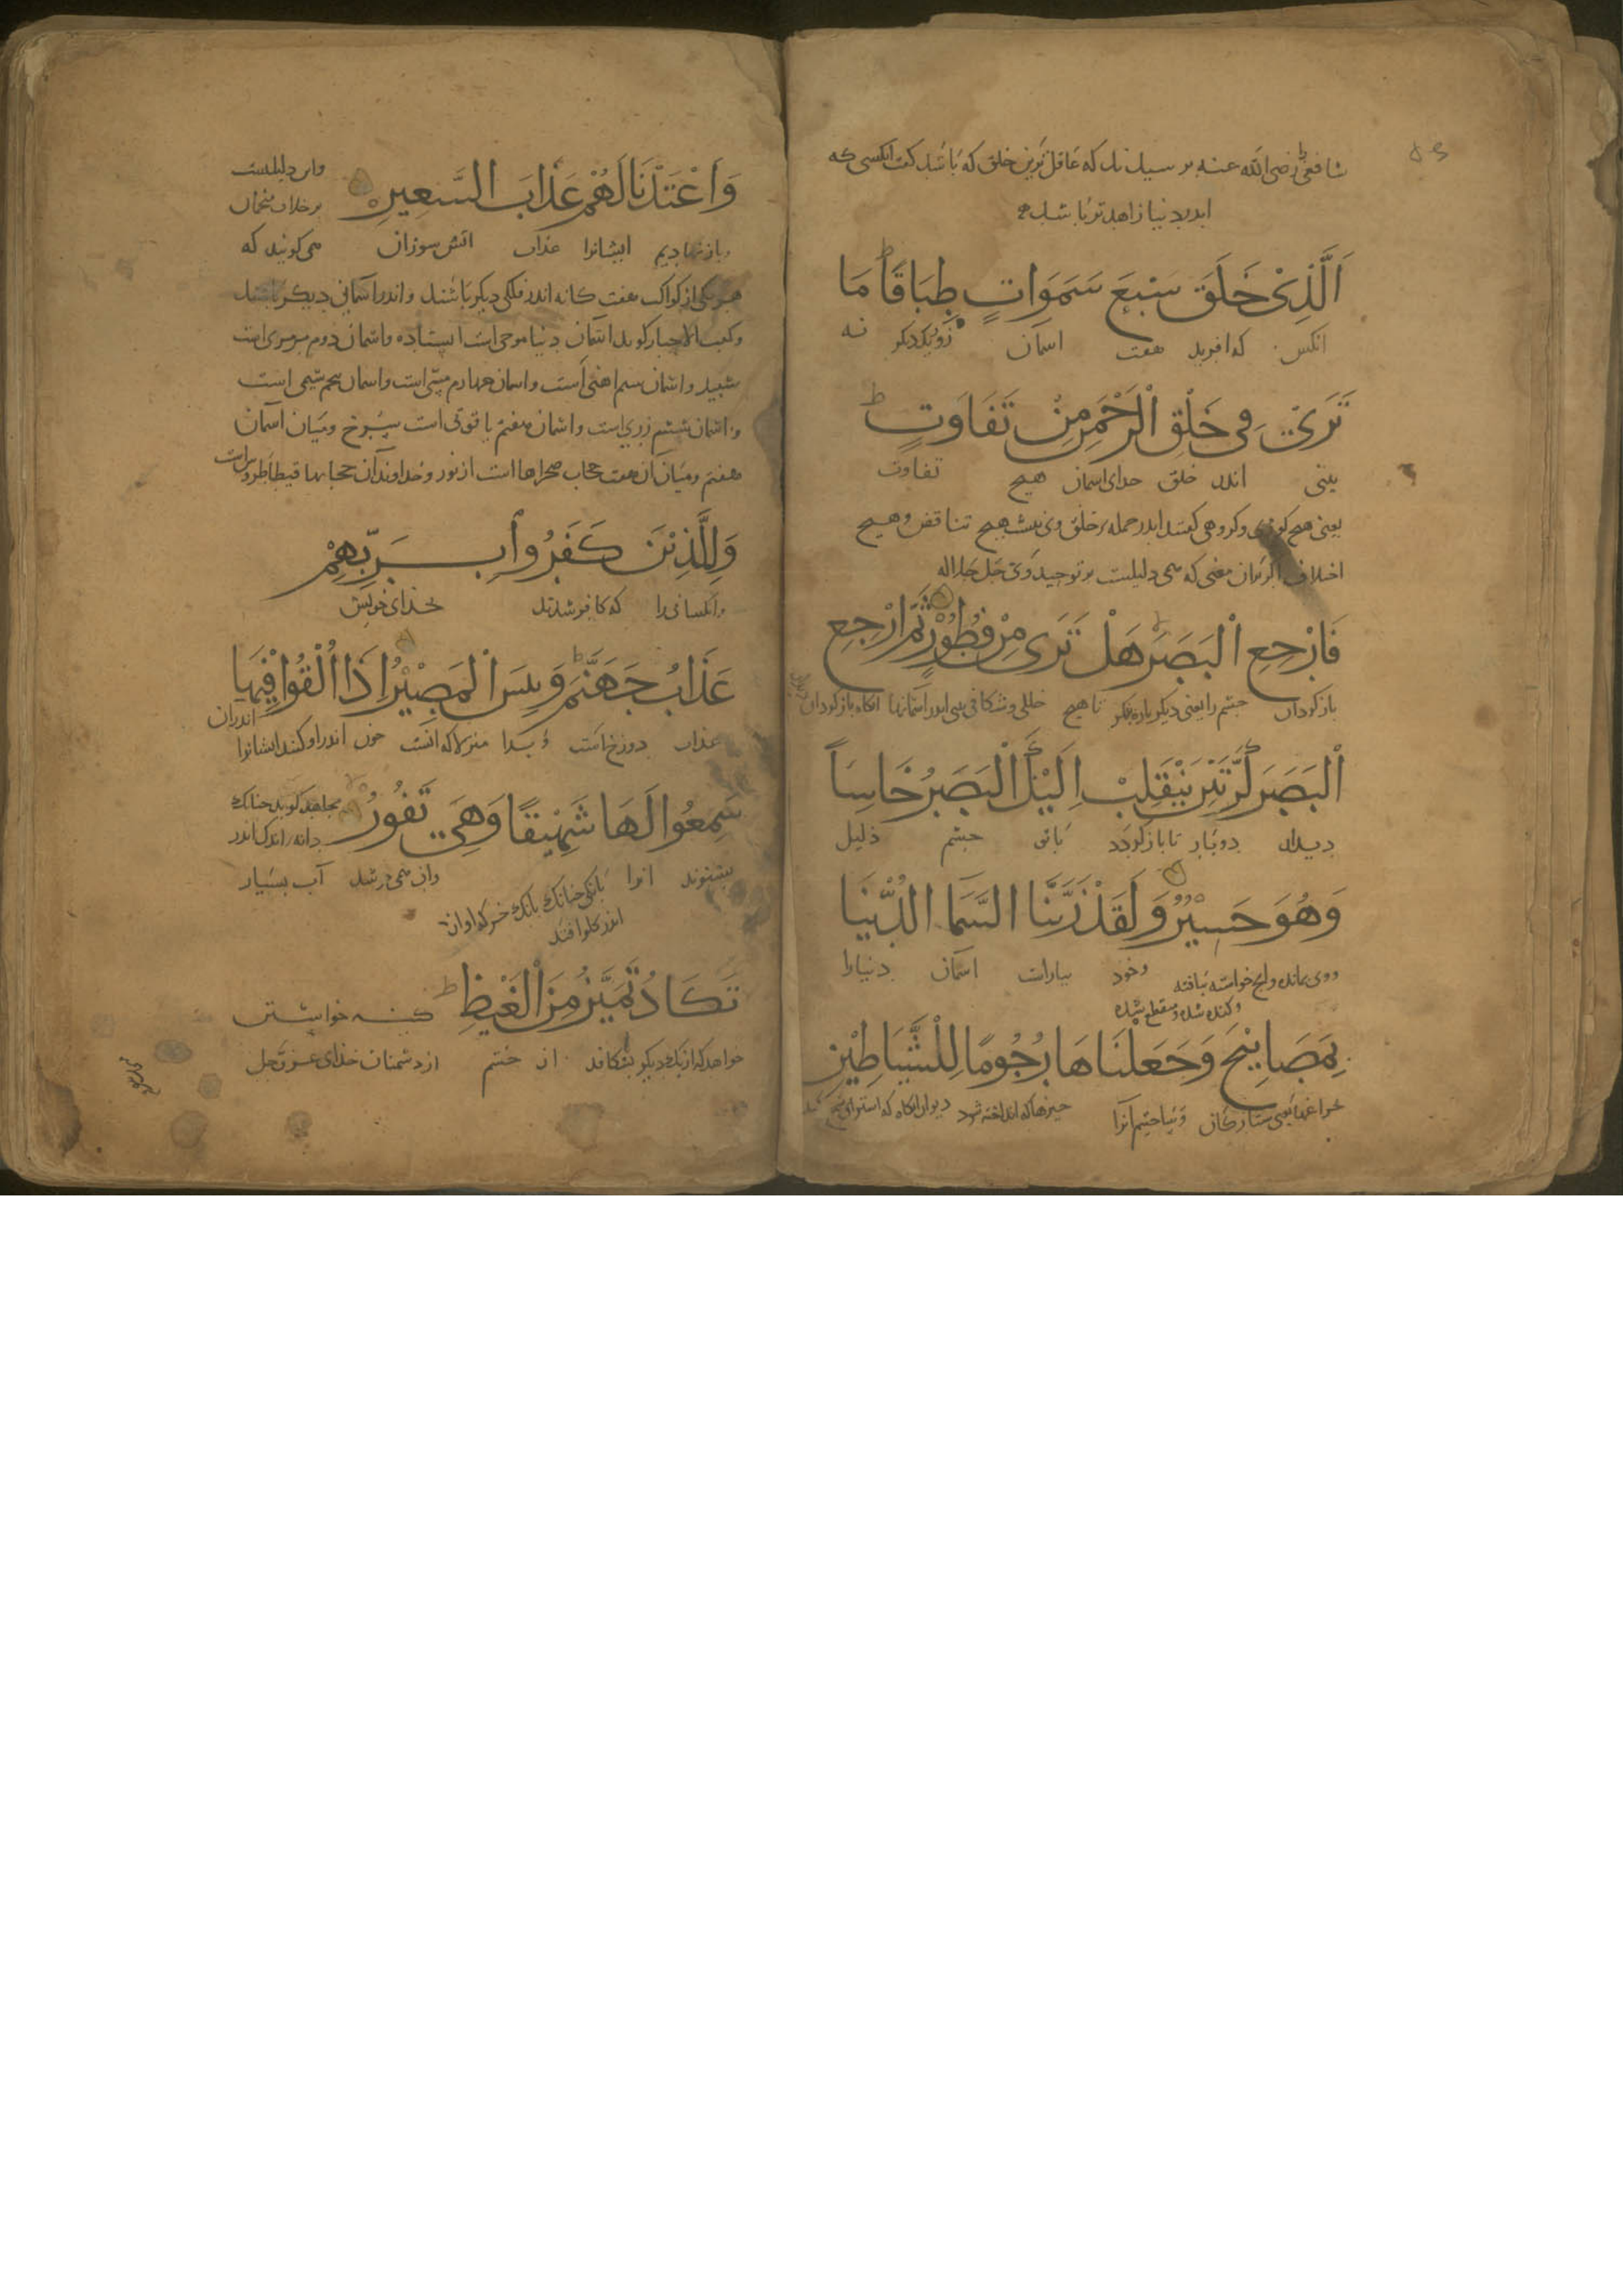 شافعی را رضی الله عنه برسیدند که عاقل ترین خلق که باشد کفت انکسی که
اندر دنیا زاهدتر باشد
اَلَّذِیْ خَلَقَ سَبْعَ سَمَوَاتٍ طِبَاقًا مَا
انکس که افرید هفت اسمان زبر یکدیکر نه
تَرَیٰ فِی خَلْقِ الرَّحْمَنِ مِنْ تَفَاوُتٍ
بینی اندر خلق خدای اسمان هیچ تفاوت
یعنی هیچ کوژی وکروهی کفتند اندر جمله خلق وی نیست هیچ تناقض وهیچ
اختلاف از بران معنی که همی دلیلست بر توحید وی جل جلاله
فَارْجِعِ الْبَصَرَ هَلْ تَرَی مِنْ فُطُوْرٍ ثُمَّ ارْجِعِ
بازکردان جشم را یعنی دیکرباره بنکر تا هیچ خللی وشکافی بینی اندر اسمانها انکاه بازکردان
الْبَصَرَ كَرَّتَیْنِ یَنْقَلِبْ اِلَیْكَ الْبَصَرُ خَاسِئاً
دیدار دوبار تا بازکردد باتو جشم ذلیل
وَهُوَ حَسِیْرٌ وَلَقَدْ زَیَّنَّا السَّمَا الدُّنْیَا
ووی بمانده وانج خواسته نیافته وخود بیاراست اسمان دنیارا
وکنده شده ومنقطع شده
بِمَصَابِیْحَ وَجَعَلْنَاهَا رُجُومًا لِلشَّیَاطِیْنِ
جراغها یعنی ستارکان وساختیم آنرا جیزها که انداخته شود دیوانرا انکاه که
وَاَعْتَدْنَا لَهُمْ عَذَابَ السَّعِیرِ
واین دلیلست
بر خلاف منجمان
وبازنهادیم ایشانرا عذاب اتش سوزان همی کویند که
هر یکی از کواکب هفت کانه اندر فلکی دیکر باشند واندر اسمانی دیکر باشند
وکعب الاحبار کوید اسمان دنیا موجی است ایستاده واسمان دوم مرمری است
سبید واسمان سیم اهنی است واسمان چهارم مسی است واسمان پنجم سیمی است
واسمان ششم زرین است واسمان هفتم یاقوتی است سرخ ومیان اسمان
هفتم ومیان آن هفت حجاب صحراها است از نور وخداوند آن حجابها
وَلِلَّذِیْنَ كَفَرُوا بِرَبِّهِمْ
وانکسانی را که کافر شدند خدای خویش
عَذَابُ جَهَنَّمَ وَبِئْسَ الْمَصِیْرُ اِذَا اُلْقُوا فِیْهَا
عذاب دوزخ است وبدا منزلا که انست جون اندر اوکنند ایشانرا اندران
سَمِعُوا لَهَا شَهِیْقًا وَهِیَ تَفُوْرُ
مجاهد کوید جنانك
دانه اندك اندر
بشنوند انرا بانکی جنانك بانك خر که اواز وان همی جوشد آب بسیار
اندر کلو افتد
تَكَادُ تَمَیَّزُ مِنَ الْغَیْظِ
کینه خواستن
خواهد که از یك دیکر بشکافد از خشم از دشمنان خدای عز وجل